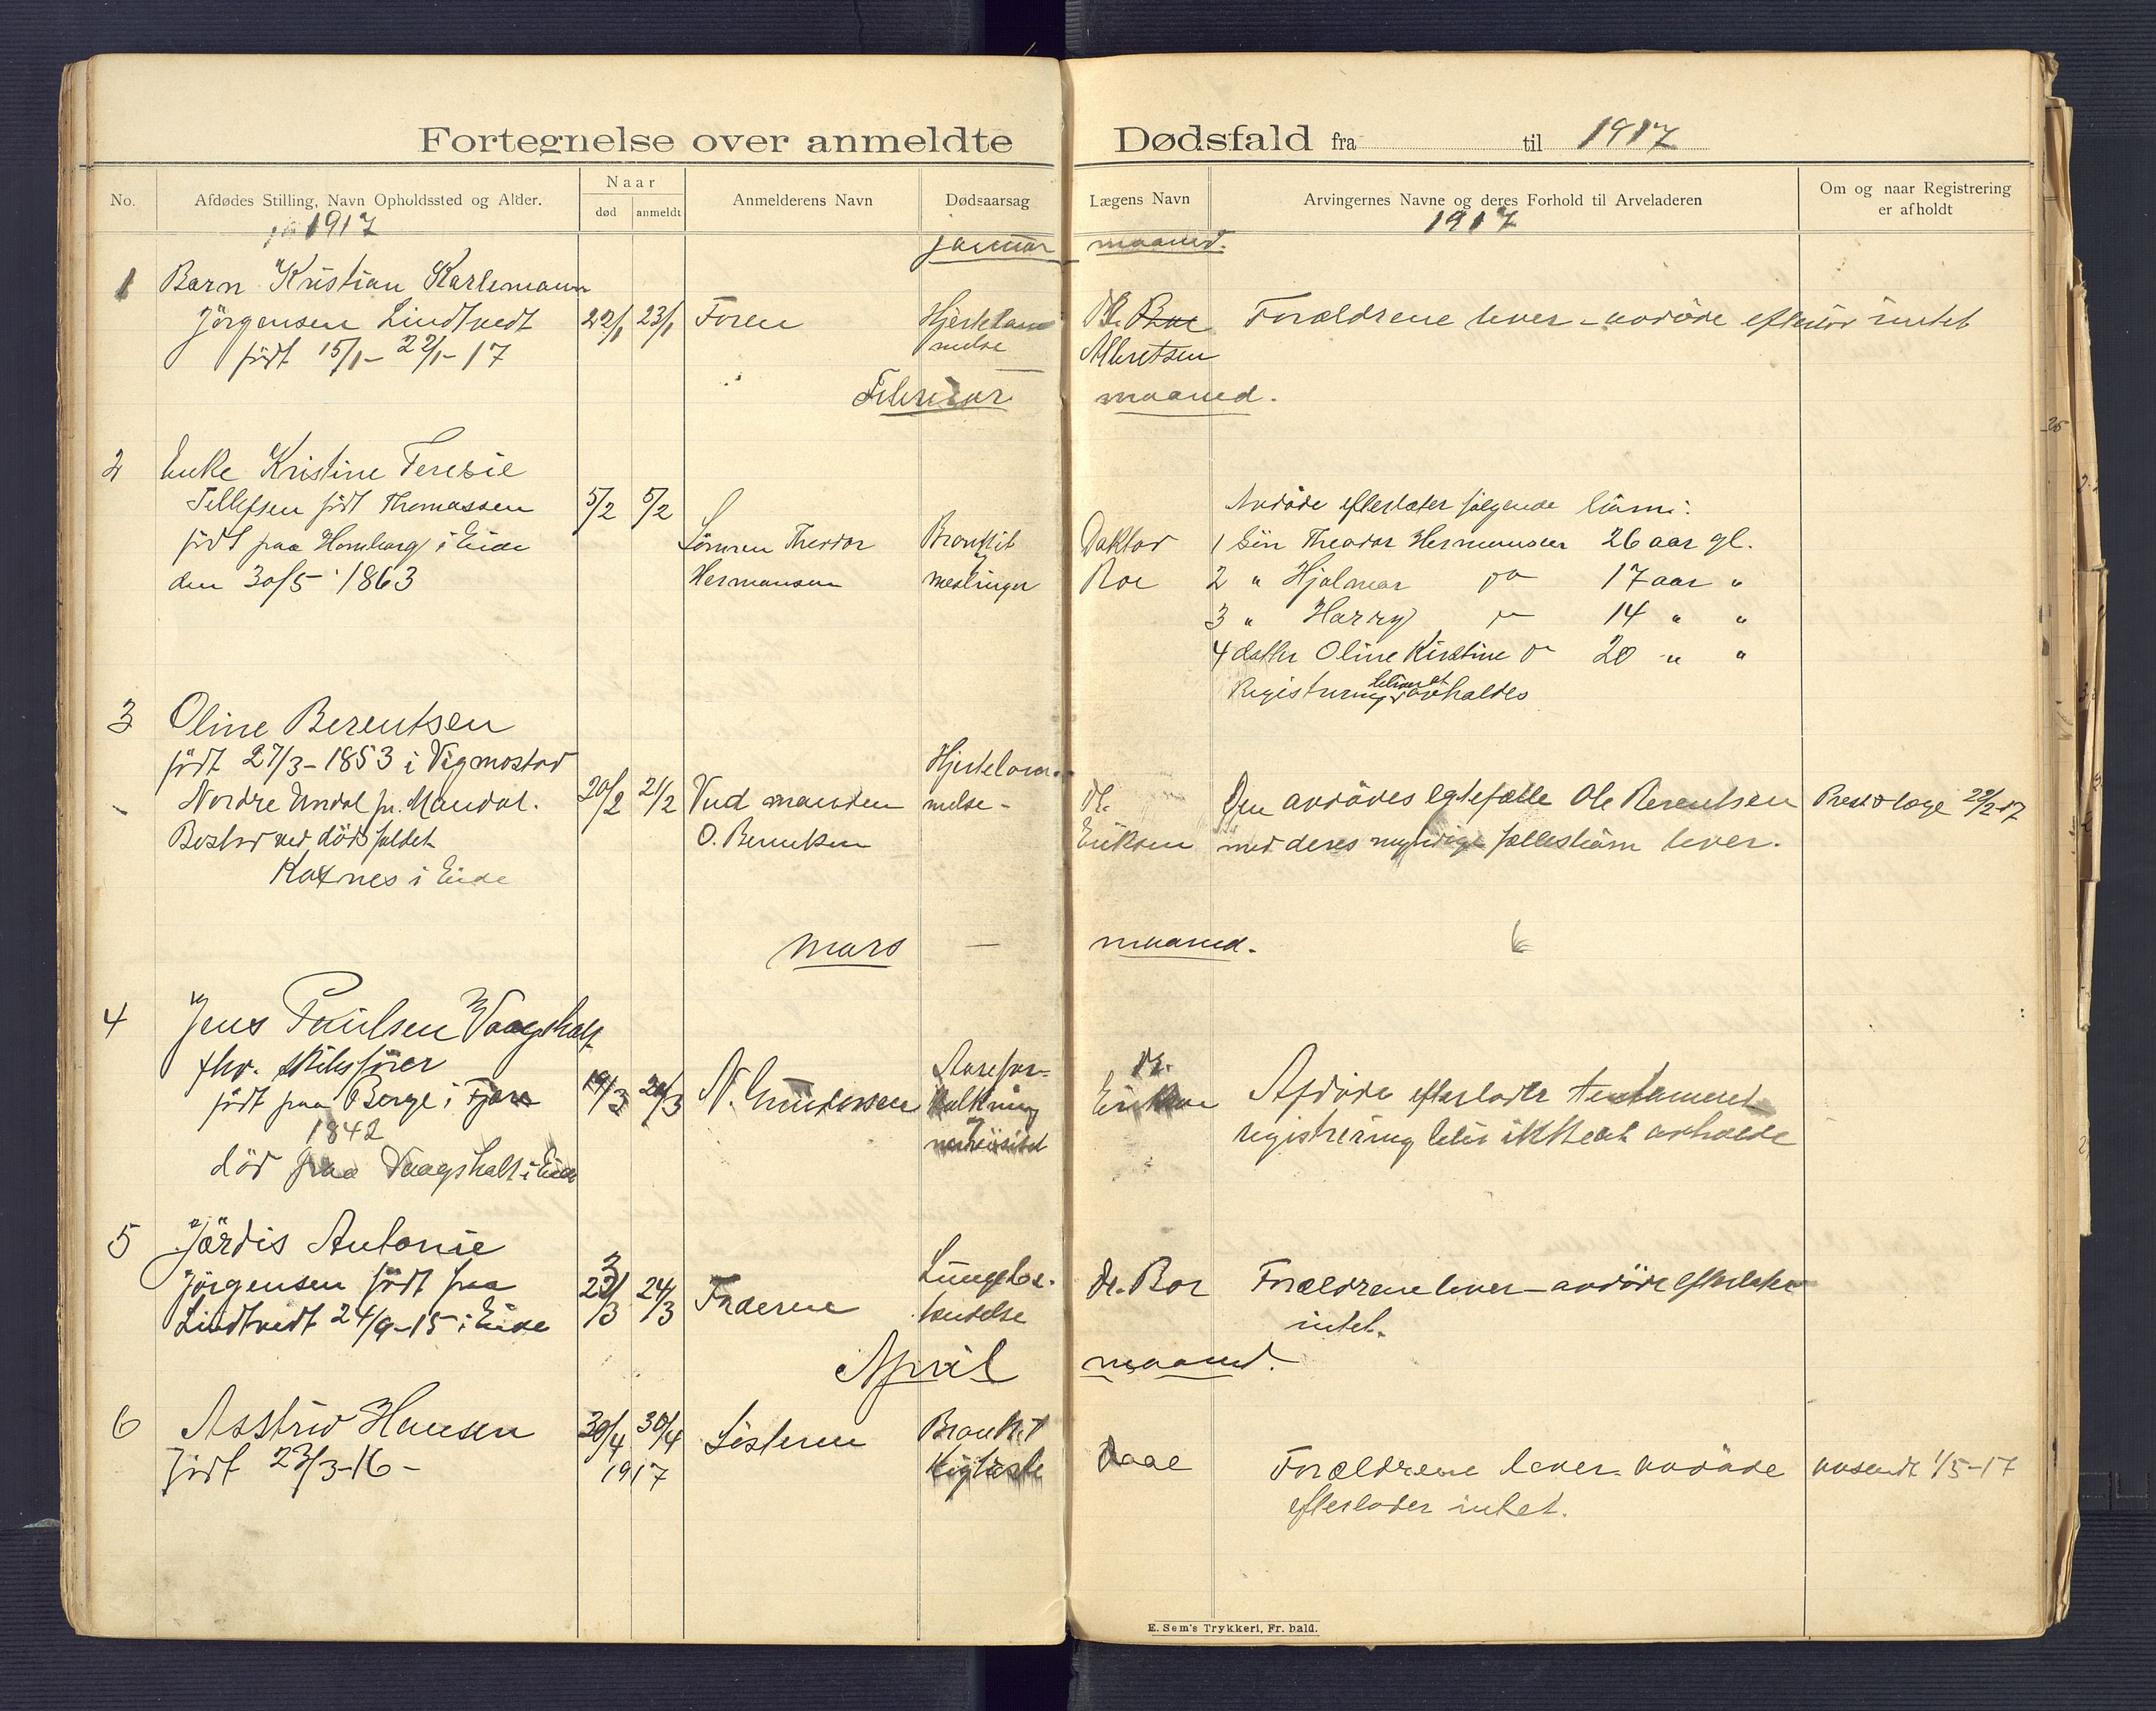 Fortegnelse over anmeldte Dødsfald fra til 1917
No. Afdødes Stilling, Navn Opholdssted og Alder. Naar død anmeldt Anmelderens Navn Dødsaarsag Lægens Navn Arvingernes Navne og deres Forhold til Arveladeren Om og naar Registrering er afholdt
1917 1917
januar maaned.
1 Barn Kristian Karlemann
Jörgensen Lindtvedt 22/1 23/1 Faren Hjertelam Dr. Roe Forældrene lever - avdöde efterlod intet
födt 15/1 - 22/1 - 17 melse Albretsen
Februar maaned.
2 Enke Kristine Teresie
Tellefsen födt Thomassen 5/2 5/2 Avdöde efterlater fölgende börn:
födt paa Homborg i Eide Sönnen Theodor Bronkit Doktor 1 Sön Theodor Hermansen 26 aar gl.
den 30/5 1863 Hermansen meslinger Roe 2 " Hjalmar do 17 aar "
3 " Harry do 14 " "
4 datter Oline Kirstine do 20 " "
Registrering avholdes
3 Oline Berentsen
födt 27/3 - 1853 i Vigmostad Hjertelam
Nordre Undal pr. Mandal. 20/2 21/2 Ved manden melse - Dr. Den avdödes egtefælle Ole Berentsen 22/2-17
Bosted ved dödsfaldet O. Berentsen Eriksen med deres myndige fællesbörn lever.
Kaxnes i Eide
mars - maaned.
4 Jens Paulsen Vaagsholt
fhv. skibsförer Aarefor= Dr.
födt paa Berge i Fjære 19/3 20/3 N. Gundersen kalkning Eriksen Afdöde efterlader testament
1842 registrering blir ikke at avholde
död paa Vaagsholt i Eide
5 Hjördis Antonie
Jörgensen födt paa 23/3 24/3 Faderen Lungebe- Dr. Roe Forældrene lever - avdöde efterlater
Lindtvedt 24/9-15 i Eide tændelse intet.
April maaned.
6 Asstrid Hansen 30/4 30/4 Sösteren Bronkit
födt 23/3-16 - 1917 Kighoste Daae Forældrene lever. avdöde avsendt 1/5-17
efterlader intet.
E. Sem's Trykkeri, Fr. hald.